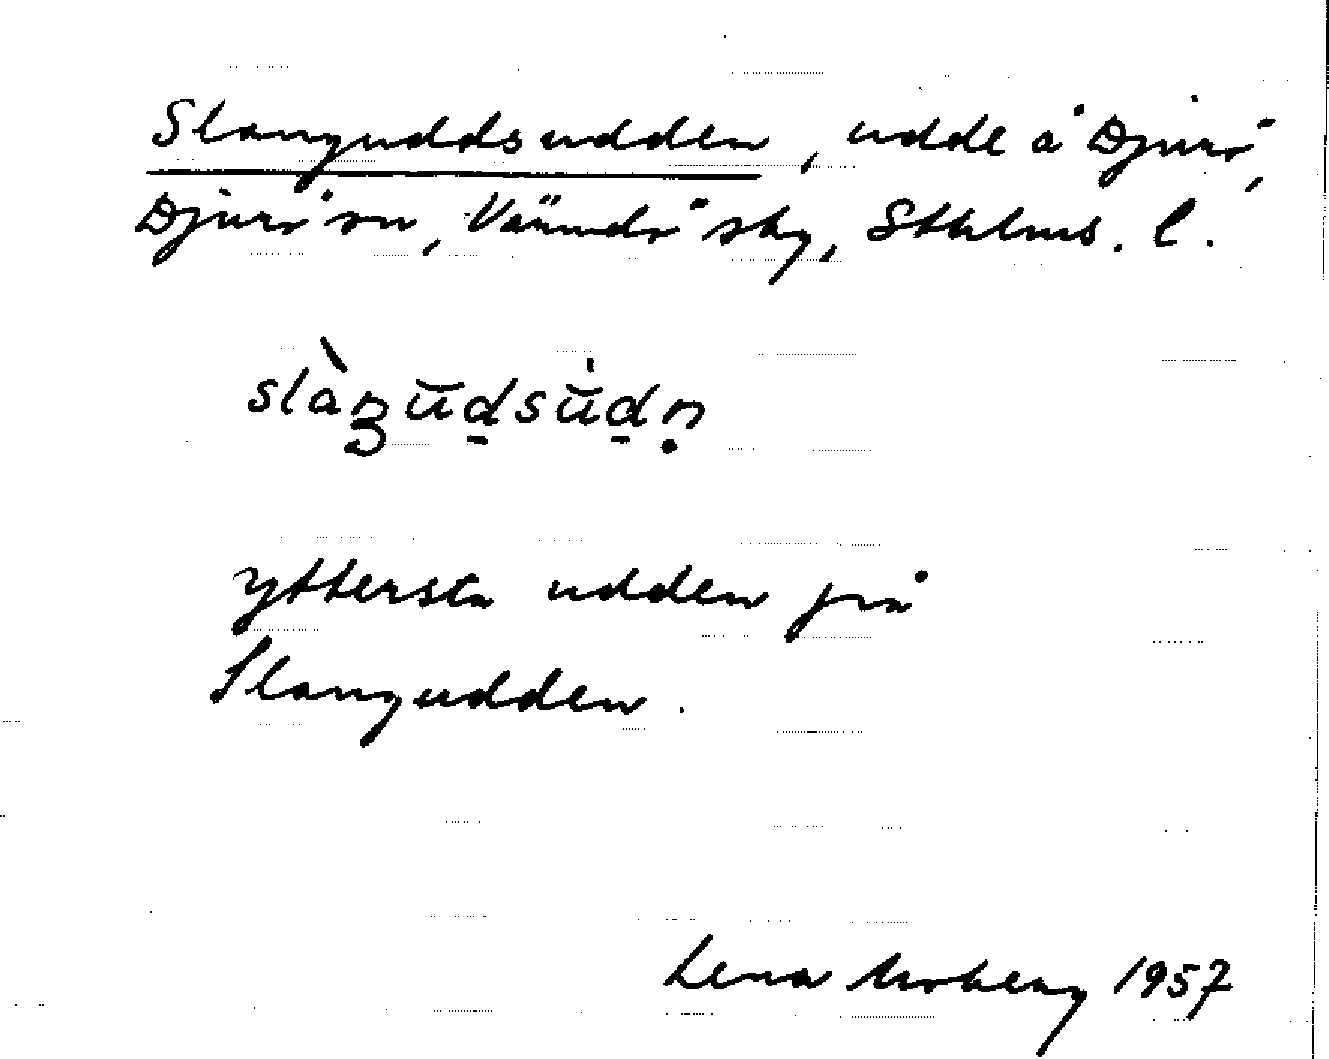 Slanguddsudden, udde å Djurö,
Djurö sn, Värmdö sky, Sthlms. l.
slàŋŭd̠sŭ̀d̠ṇ
yttersta udden på
Slangudden.
Lena Moberg 1957